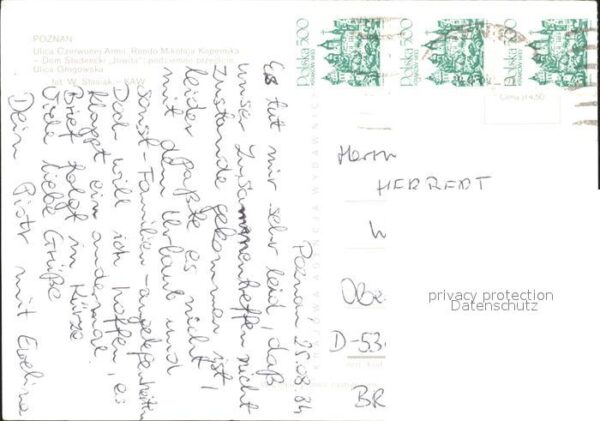 POZNAŃ
Ulica Czerwonej Armii, Rondo Mikołaja Kopernika
– Dom Studencki „Jowita”, podziemne przejście
Ulica Głogowska
fot. W. Stasiak – KAW
Polska 500
Polska 500
Polska 500
Cena zł 4,50
KRAJOWA AGENCJA WYDAWNICZA
Poznań 25.08.84
Es tut mir sehr leid, daß
unser Zusammentreffen nicht
zustande gekommen ist,
leider paßte es nicht
mit dem Urlaub und
sonst-Familien-angelegenheiten
Doch will ich hoffen, es
klappt ein andermal.
Brief folgt in Kürze
Viele liebe Grüße
Dein Piotr mit Ewelina
Herrn
HERBERT
W
Obe
D-53
BR
privacy protection
Datenschutz